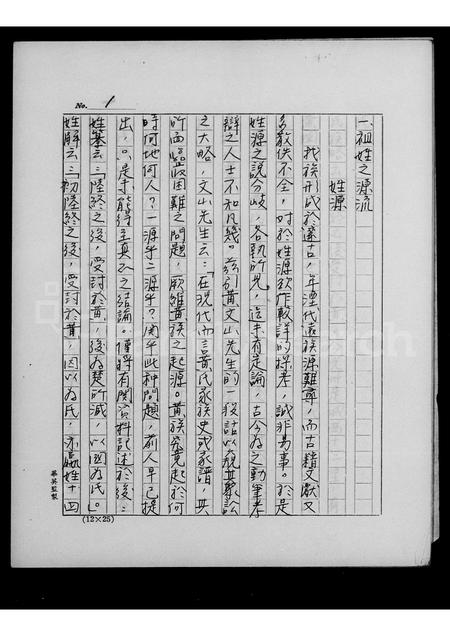 No. 1
一、祖姓之源流
姓源
我族形成於遠古，年湮代遠族源難尋，而古籍文獻又
多散佚不全，對於姓源欲作較詳的探考，誠非易事。於是
姓源之說分岐，各執所見，迄未有定論，古今為之動筆考
辯之人士不知凡幾。茲引黃文山先生的一段話以窺其聚訟
之大略，文山先生云：「在現代而言黃氏家族史或家譜，其
所面臨收困難之問題，厥維黃族之起源。黃族究竟起於何
時何地何人？一源乎二源乎？関乎此种問題，前人早已提
出，只是未能得至真正之結論。僅將有関資料記述於後：
姓纂云：「陸終之後，受封於黃，後為楚所滅，以國為氏。」
姓解云：「初陸終之後，受封於黃，因以為氏，亦嬴姓十四
(12×25)